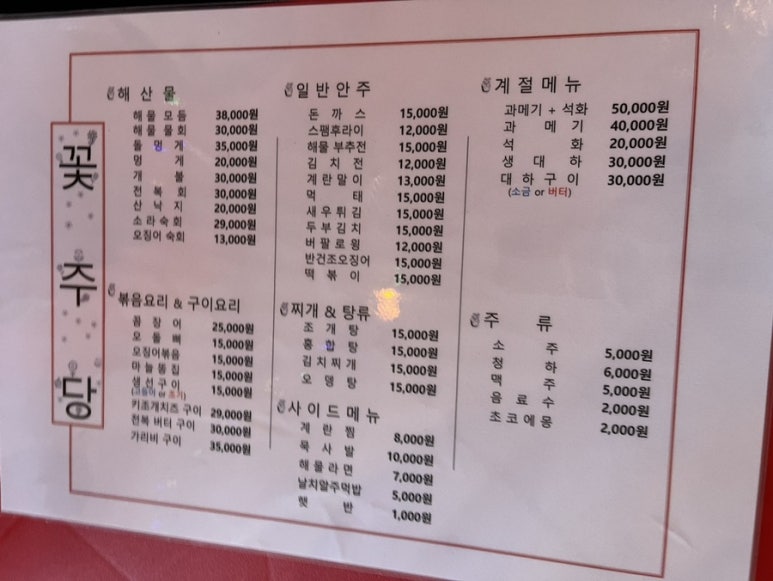 꽃주당
해산물
해물모듬 38,000원
해물물회 30,000원
돌멍게 35,000원
멍게 20,000원
개불 30,000원
전복회 30,000원
산낙지 20,000원
소라숙회 29,000원
오징어숙회 13,000원
볶음요리 & 구이요리
꼼장어 25,000원
오돌뼈 15,000원
오징어볶음 15,000원
마늘똥집 15,000원
생선구이 15,000원
(고등어 or 조기)
키조개치즈 구이 29,000원
전복 버터 구이 30,000원
가리비 구이 35,000원
일반안주
돈까스 15,000원
스팸후라이 12,000원
해물 부추전 15,000원
김치전 12,000원
계란말이 13,000원
먹태 15,000원
새우튀김 15,000원
두부김치 15,000원
버팔로윙 12,000원
반건조오징어 15,000원
떡볶이 15,000원
찌개 & 탕류
조개탕 15,000원
홍합탕 15,000원
김치찌개 15,000원
오뎅탕 15,000원
사이드메뉴
계란찜 8,000원
묵사발 10,000원
해물라면 7,000원
날치알주먹밥 5,000원
햇반 1,000원
계절메뉴
과메기 + 석화 50,000원
과메기 40,000원
석화 20,000원
생대하 30,000원
대하구이 30,000원
(소금 or 버터)
주류
소주 5,000원
청하 6,000원
맥주 5,000원
음료수 2,000원
초코에몽 2,000원